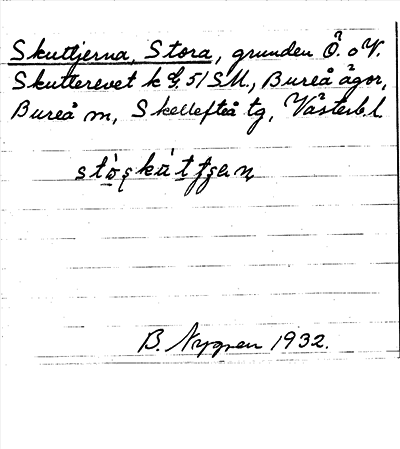 Skuttjerna, Stora, grunden Ö. o V.
Skutterevet k G. 51 S.M., Bureå ägor,
Bureå m, Skellefteå tg, Västerb. l.
B. Nygren 1932.